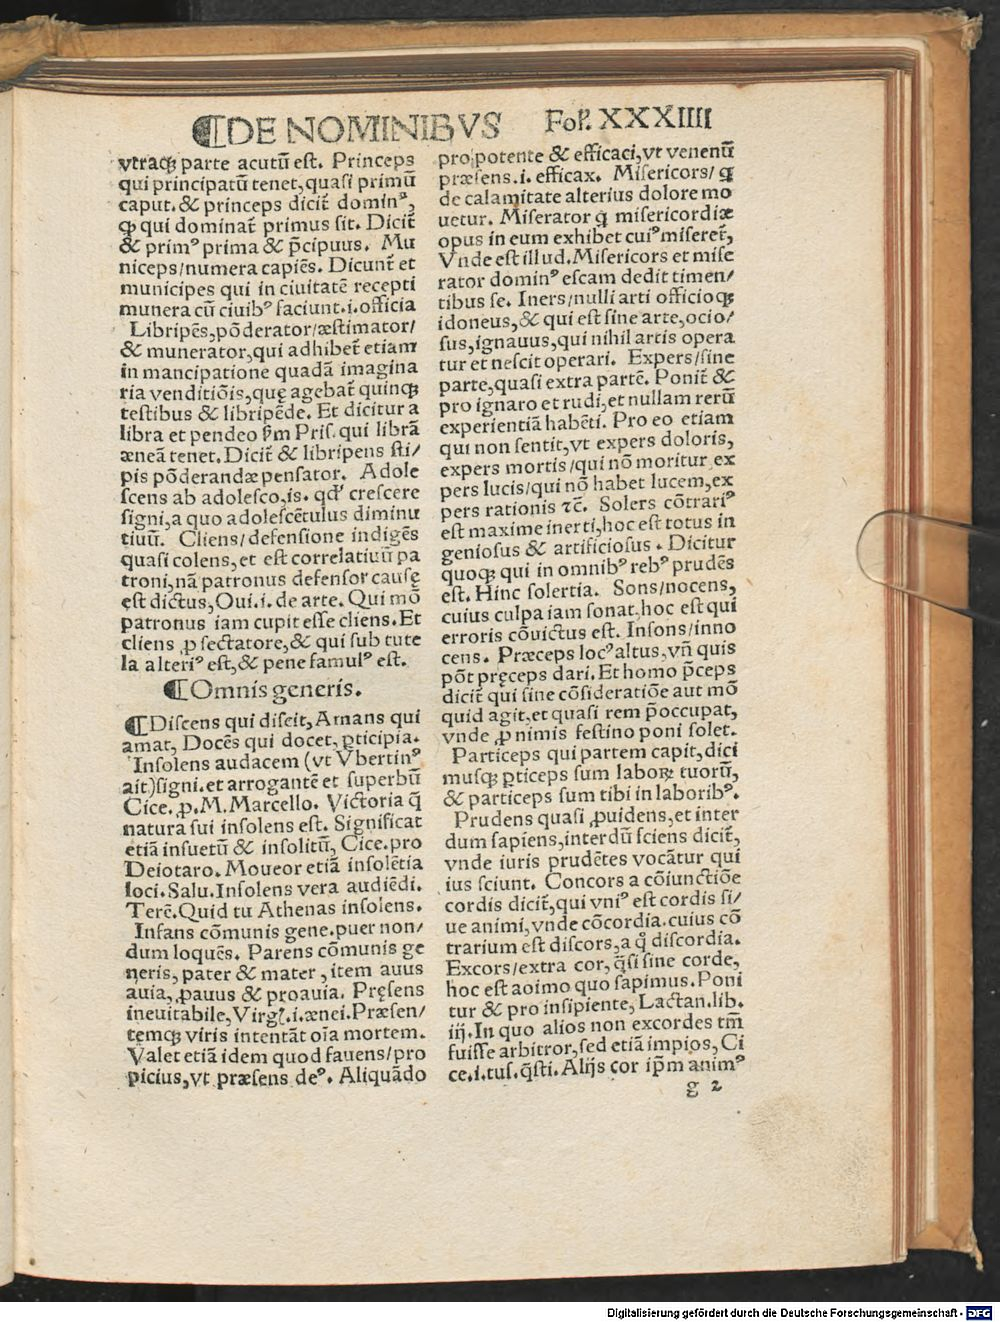 ¶DE NOMINIBVS Fol. XXXIIII
vtraqꝫ parte acutū est. Princeps
qui principatū tenet,quasi primū
caput.& princeps dicit̄ dominꝰ,
ꝙ qui dominat̄ primus sit. Dicit̄
& primꝰ prima & p̄cipuus. Mu
niceps/numera capiēs. Dicunt̄ et
municipes qui in ciuitatē recepti
munera cū ciuibꝰ faciunt.i.officia
Libripēs,pōderator/æstimator/
& munerator,qui adhibet̄ etiam
in mancipatione quadā imagina
ria venditiōis,quę agebat̄ quinqꝫ
testibus & libripēde. Et dicitur a
libra et pendeo ẜm Pris. qui librā
æneā tenet. Dicit̄ & libripens sti/
pis pōderandæ pensator. Adole
scens ab adolesco,is. qđ crescere
signi,a quo adolescētulus diminu
tiuū. Cliens/defensione indigēs
quasi colens,et est correlatiuū pa
troni,nā patronus defensor causę
ęst dictus,Oui.i.de arte. Qui mō
patronus iam cupit esse cliens.Et
cliens ꝓ sectatore,& qui sub tute
la alteriꝰ est,& pene famulꝰ est.
¶Omnis generis.
¶Discens qui discit, Amans qui
amat, Docēs qui docet, ꝑticipia.
Insolens audacem (vt Vbertinꝰ
ait)signi.et arrogantē et superbū
Cice.ꝓ.M.Marcello. Victoria q̄
natura sui insolens est. Significat
etiā insuetū & insolitū, Cice.pro
Deiotaro. Moueor etiā insolētia
loci.Salu.Insolens vera audiēdi.
Terē.Quid tu Athenas insolens.
Infans cōmunis gene.puer non/
dum loquēs. Parens cōmunis ge
neris, pater & mater, item auus
auia, ꝓauus & proauia. Pręsens
ineuitabile, Virgl.i.ænei.Præsen/
temqꝫ viris intentāt oīa mortem.
Valet etiā idem quod fauens/pro
picius,vt præsens deꝰ. Aliquādo
pro potente & efficaci,vt venenū
præsens.i.efficax. Misericors/ ꝗ
de calamitate alterius dolore mo
uetur. Miserator ꝗ misericordiæ
opus in eum exhibet cuiꝰ miseret̄,
Vnde est illud.Misericors et mise
rator dominꝰ escam dedit timen/
tibus se. Iners/nulli arti officioqꝫ
idoneus,& qui est sine arte,ocio/
sus,ignauus,qui nihil artis opera
tur et nescit operari. Expers/sine
parte,quasi extra partē. Ponit̄ &
pro ignaro et rudi,et nullam rerū
experientiā habēti. Pro eo etiam
qui non sentit,vt expers doloris,
expers mortis/qui nō moritur,ex
pers lucis/qui nō habet lucem,ex
pers rationis ⁊c̄. Solers cōtrariꝰ
est maxime inerti,hoc est totus in
geniosus & artificiosus. Dicitur
quoqꝫ qui in omnibꝰ rebꝰ prudēs
est. Hinc solertia. Sons/nocens,
cuius culpa iam sonat,hoc est qui
erroris cōuictus est. Insons/inno
cens. Præceps locꝰ altus,vn̄ quis
pōt pręceps dari. Et homo p̄ceps
dicit̄ qui sine cōsideratiōe aut mō
quid agit,et quasi rem p̄occupat,
vnde ꝓ nimis festino poni solet.
Particeps qui partem capit,dici
musqꝫ ꝑticeps sum laboꝝ tuorū,
& particeps sum tibi in laboribꝰ.
Prudens quasi ꝓuidens,et inter
dum sapiens,interdū sciens dicit̄,
vnde iuris prudētes vocātur qui
ius sciunt. Concors a cōiunctiōe
cordis dicit̄,qui vniꝰ est cordis si/
ue animi,vnde cōcordia.cuius cō
trarium est discors,a q̊ discordia.
Excors/extra cor, q̄si sine corde,
hoc est aoimo quo sapimus.Poni
tur & pro insipiente, Lactan.lib.
iij.In quo alios non excordes tm̄
fuisse arbitror,sed etiā impios, Ci
ce.i.tus.q̄sti. Alijs cor ip̄m animꝰ
g 2
Digitalisierung gefördert durch die Deutsche Forschungsgemeinschaft - DFG